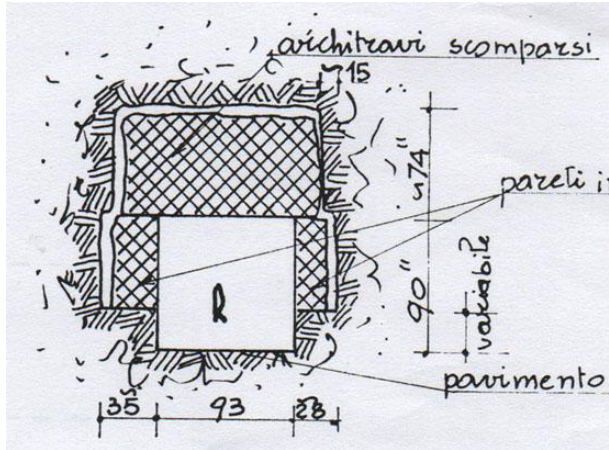 architravi scomparsi
15
~74"
pareti i
R
90"
variabile
pavimento
35 93 28